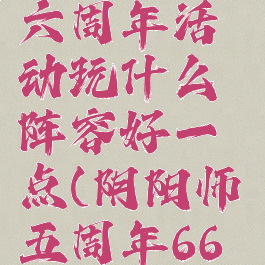 六周年活
动玩什么
阵容好一
点(阴阳师
五周年66